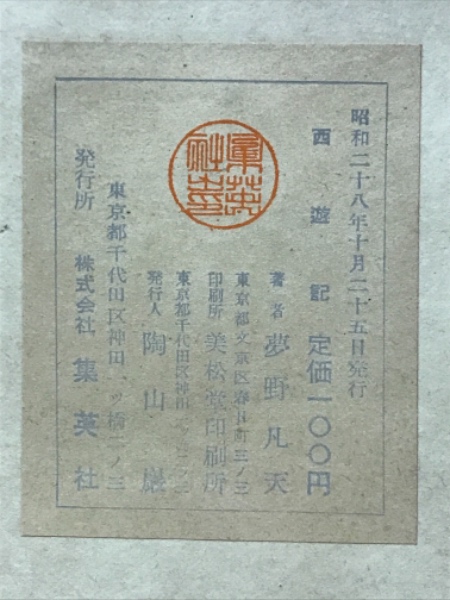 昭和二十八年十月二十五日発行
西遊記 定価一〇〇円
著者 夢野凡天
東京都文京区春日町三ノ三
印刷所 美松堂印刷所
東京都千代田区神田一ツ橋二ノ三
発行人 陶山巌
東京都千代田区神田一ツ橋二ノ三
発行所 株式会社 集英社
集英社之印